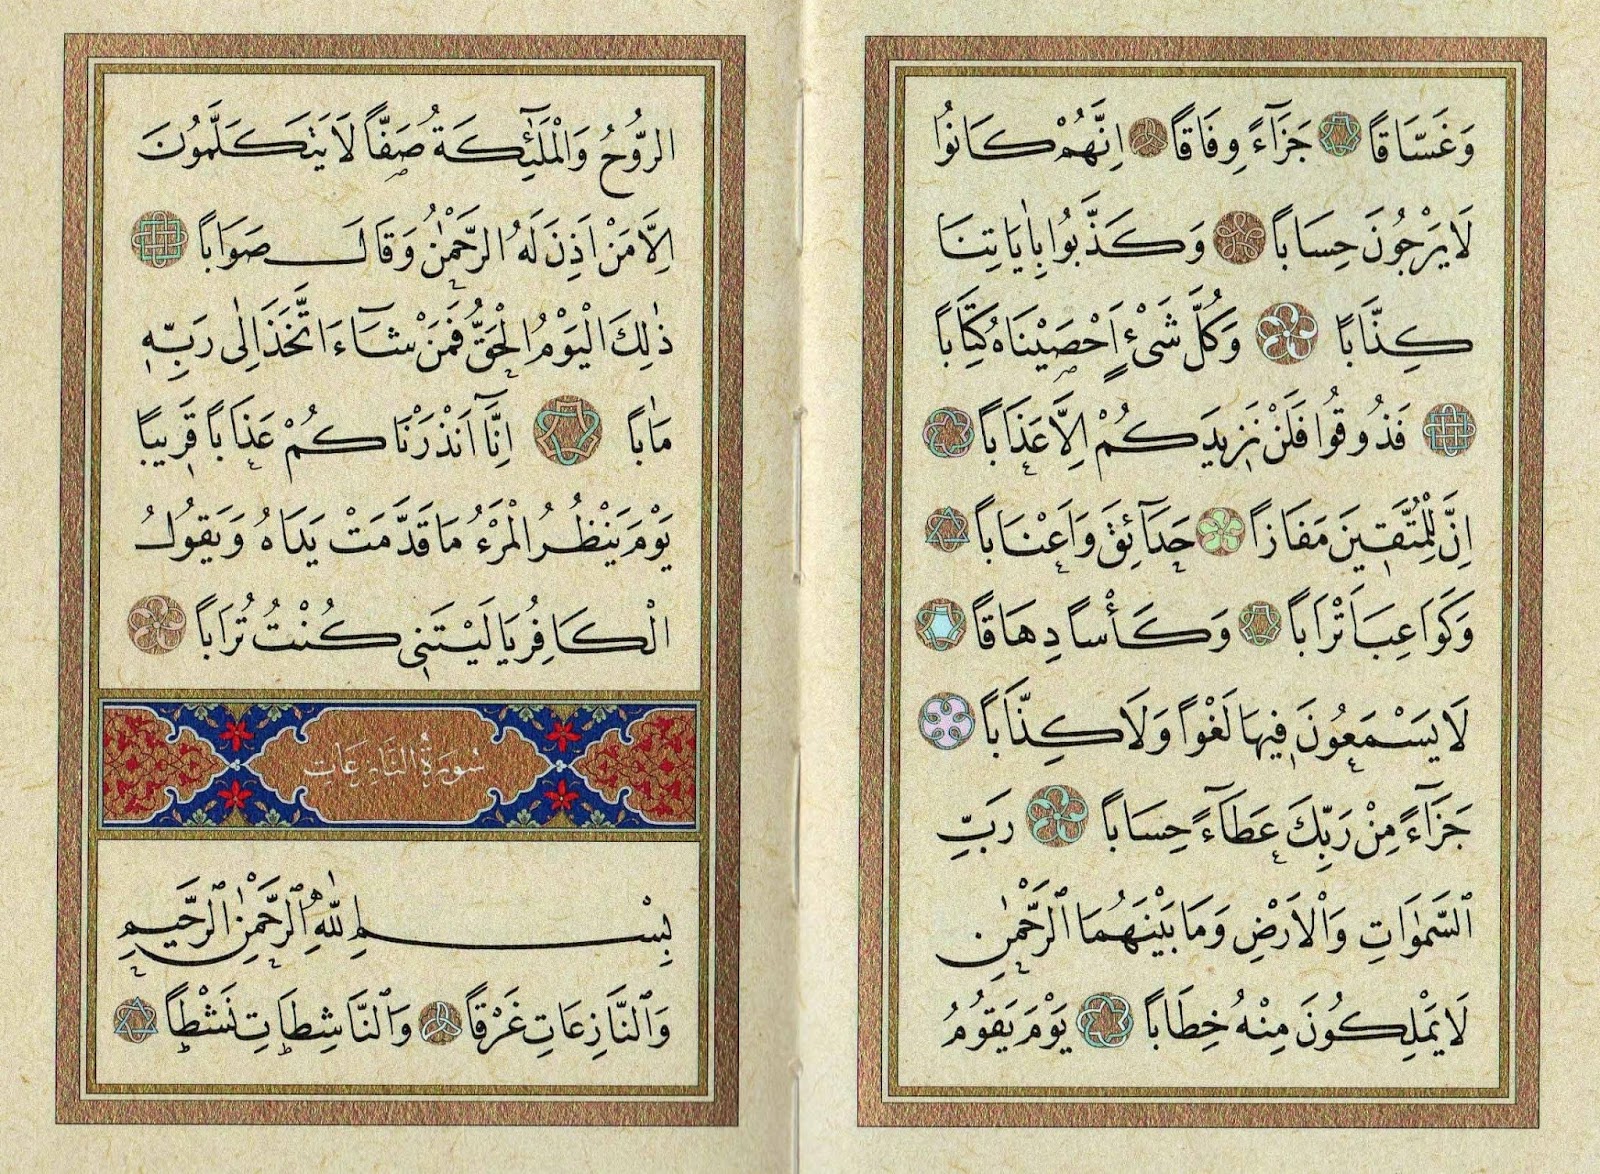 وَغَسَّاقًا جَزَآءً وِفَاقًا اِنَّهُمْ كَانُوا
لَا يَرْجُونَ حِسَابًا وَكَذَّبُوا بِاٰيَاتِنَا
كِذَّابًا وَكُلَّ شَىْءٍ اَحْصَيْنَاهُ كِتَابًا
فَذُوقُوا فَلَنْ نَزِيدَكُمْ اِلَّا عَذَابًا
اِنَّ لِلْمُتَّقِينَ مَفَازًا حَدَآئِقَ وَاَعْنَابًا
وَكَوَاعِبَ اَتْرَابًا وَكَأْسًا دِهَاقًا
لَا يَسْمَعُونَ فِيهَا لَغْوًا وَلَا كِذَّابًا
جَزَآءً مِنْ رَبِّكَ عَطَآءً حِسَابًا رَبِّ
السَّمٰوَاتِ وَالْاَرْضِ وَمَا بَيْنَهُمَا الرَّحْمٰنِ
لَا يَمْلِكُونَ مِنْهُ خِطَابًا يَوْمَ يَقُومُ
الرُّوحُ وَالْمَلٰٓئِكَةُ صَفًّا لَا يَتَكَلَّمُونَ
اِلَّا مَنْ اَذِنَ لَهُ الرَّحْمٰنُ وَقَالَ صَوَابًا
ذٰلِكَ الْيَوْمُ الْحَقُّ فَمَنْ شَآءَ اتَّخَذَ اِلٰى رَبِّهٖ
مَاٰبًا اِنَّٓا اَنْذَرْنَاكُمْ عَذَابًا قَرِيبًا
يَوْمَ يَنْظُرُ الْمَرْءُ مَا قَدَّمَتْ يَدَاهُ وَيَقُولُ
الْكَافِرُ يَا لَيْتَنِى كُنْتُ تُرَابًا
سُورَةُ النَّازِعَاتِ
بِسْمِ اللّٰهِ الرَّحْمٰنِ الرَّحِيمِ
وَالنَّازِعَاتِ غَرْقًا وَالنَّاشِطَاتِ نَشْطًا